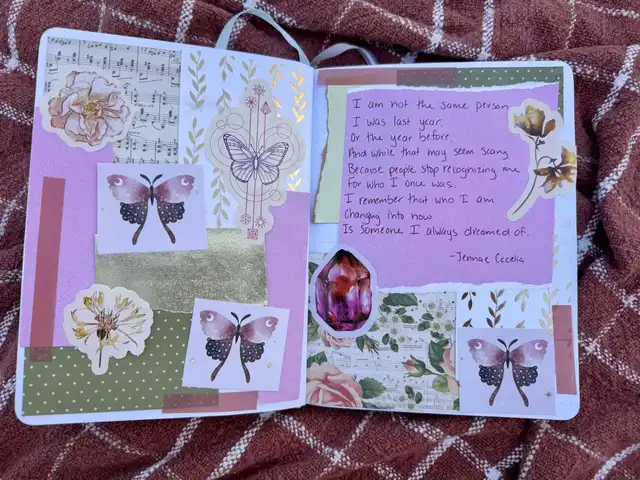 I am not the same person
I was last year.
Or the year before.
And while that may seem scary
Because people stop recognizing me
For who I once was.
I remember that who I am
Changing into now
Is someone I always dreamed of.
-Jennae Cecelia